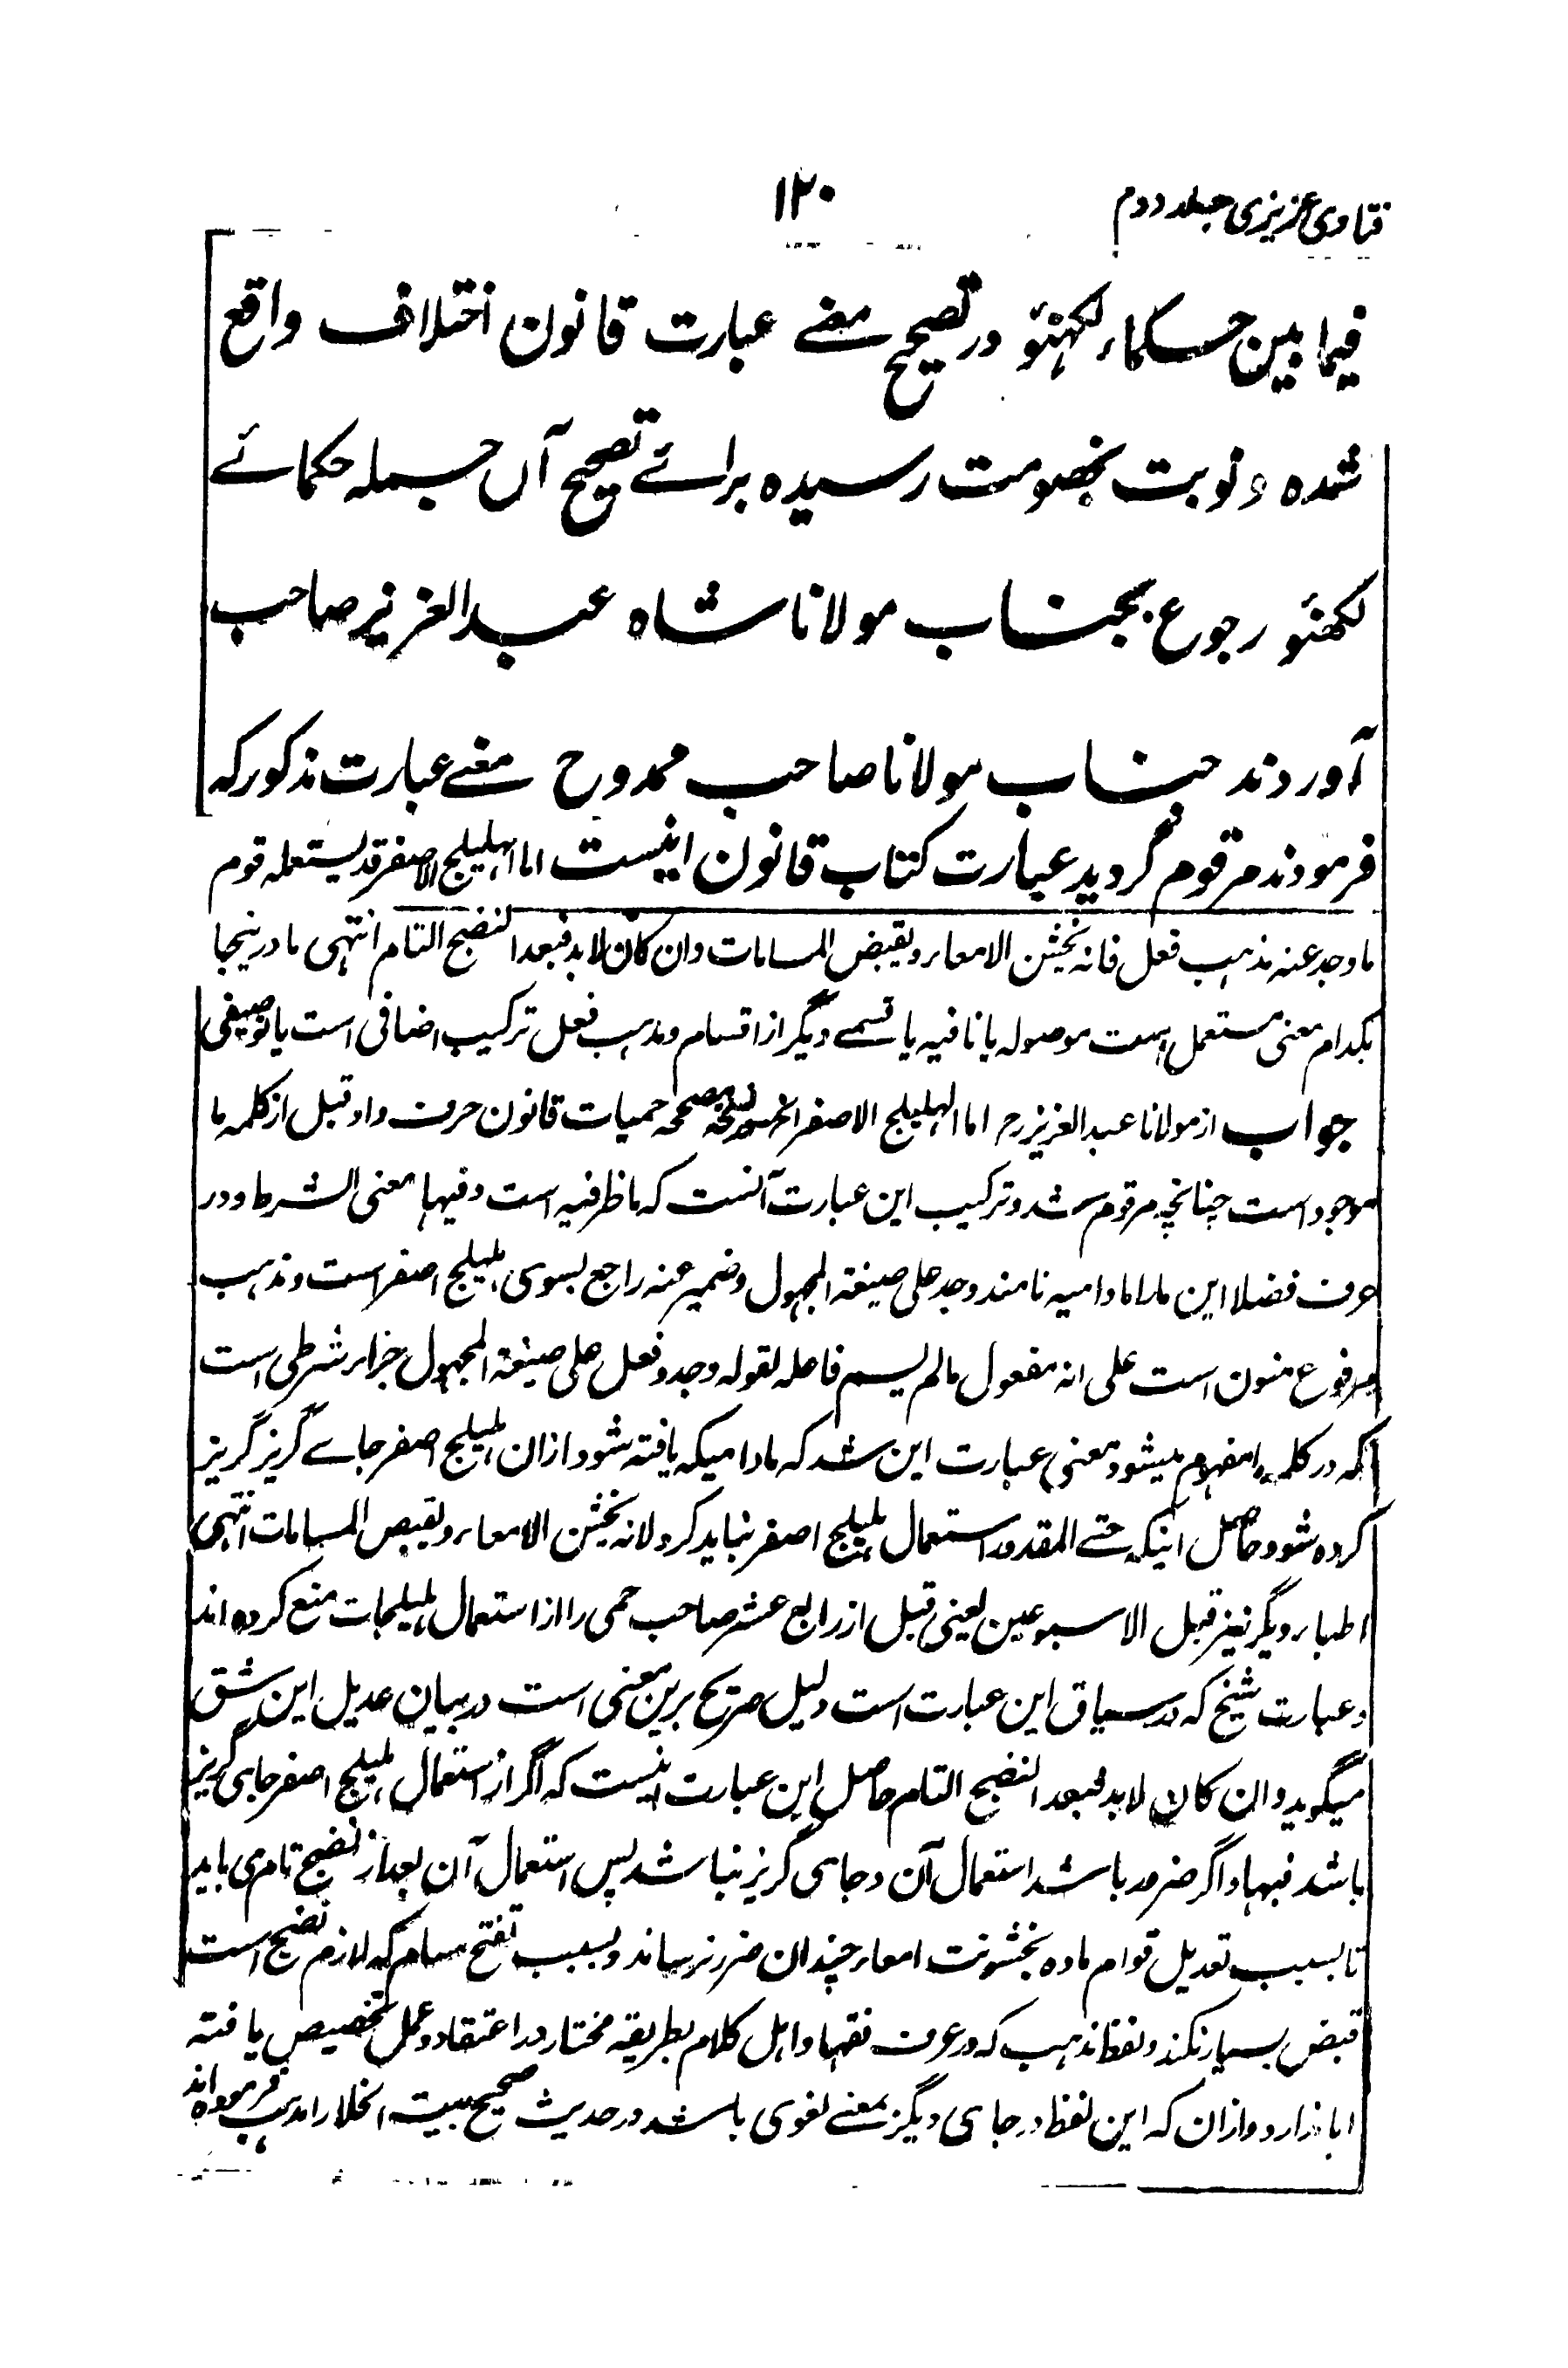 فتاوی عزیزی جلد دوم
۱۲۰
فیما بین حکماء لکهنؤ در تصحیح معنے عبارت قانون اختلاف واقع
شده و نوبت بخصومت رسیده برائے تصحیح آں جمله حکمائے
لکهنؤ رجوع بجناب مولانا شاه عبدالعزیز صاحب
آوردند جناب مولانا صاحب ممدوح معنے عبارت مذکور که
فرمودند مرقوم گردید عبارت کتاب قانون اینست اما الهلیلج الاصفر قد یستعمله قوم
ما وجد عنه مذهب فعل فانه یخشن الامعاء ویقبض المسامات وان کان لابد فبعد النضج التام انتهی ما درینجا
بکدام معنی مستعمل است موصوله یا نافیه یا قسمے دیگر از اقسام و مذهب فعل ترکیب اضافی است یا توصیفی
جواب از مولانا عبدالعزیز رح اما الهلیلج الاصفر الخ در نسخه مصححه حمیات قانون حرف واو قبل از کلمه ما
موجود است چنانچه مرقوم شد و ترکیب این عبارت آنست که ما ظرفیه است وفیها معنی الشرط و در
عرف فضلا این ما را ما دامیه نامند وجد علی صیغة المجهول وضمیر عنه راجع بسوی هلیلج اصفر است و مذهب
مرفوع منون است علی انه مفعول مالم یسم فاعله لقوله وجد و فعل علی صیغة المجهول جزاء شرطی است
که در کلمه ما مفهوم میشود معنی عبارت این شد که مادامیکه یافته شود ازان هلیلج اصفر جاے گریز گریز
کرده شود حاصل اینکه حتے المقدور استعمال هلیلج اصفر نباید کرد لانه یخشن الامعاء ویقبض المسامات انتهی
اطباء دیگر نیز قبل الاسبوعین یعنی قبل از رابع عشر صاحب حمی را از استعمال هلیلجات منع کرده اند
و عبارت شیخ که در سیاق این عبارت است دلیل صریح برین معنی است در بیان عدیل این شق
میگوید وان کان لابد فبعد النضج التام حاصل این عبارت اینست که اگر از استعمال هلیلج اصفر جای گریز
باشد فبها و اگر ضرور باشد استعمال آن و جای گریز نباشد پس استعمال آن بعد از نضج تام می باید
تا بسبب تعدیل قوام ماده بخشونت امعاء چندان ضرر نرساند و بسبب تفتح مسام که لازم نضج است
قبض بسیار نکند و لفظ مذهب که در عرف فقها و اهل کلام بطریقه مختار در اعتقاد و عمل تخصیص یافته
ابا ندارد ازان که این لفظ در جای دیگر بمعنے لغوی باشد در حدیث صحیح بیت الخلا را مذهب فرموده اند